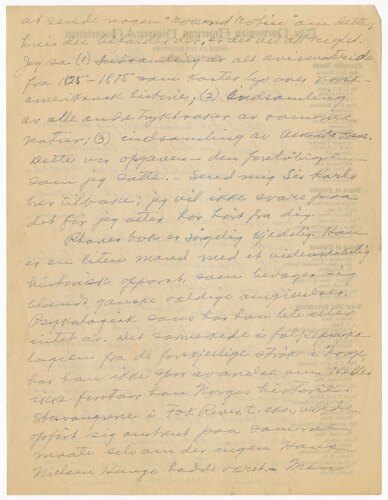 at sende nogen "Round Robin" om dette,
hvis du
Jeg sa (1) Indsamling av alt avismateriale
fra 1825-1875 som kaster lys over Norsk-
amerikansk historie; (2) indsamling
av alle andre tryksaker av samme
natur; (3) indsamling av
Dette var opgaven - den foreløbige -
som jeg satte. - Send mig Sér Karls
brev tilbake; jeg vil ikke svare paa
det før jeg atter har hørt fra dig.
bok er sørgelig kjedelig. Han
er en liten mand med et videnskabelig
historisk apparat som bevæger sig
blandt ganske veldige omgivelser.
Psykologisk sans har han lite eller
intet av. Det særmerkede i folkepsyko-
logien fra de forskjellige strøk i Norge
har han ikke spor av anelse om. Heller
ikke forstaar han Norges historie.
Stavangerne i Fox River, t. eks., vilde
opført sig omtrent paa samme
maate selv om der ingen Hans
Nielsen Hauge hadde været. - Men